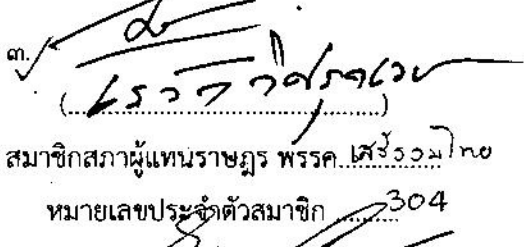 ๓.
(เรวัต วิศรุตเวช)
สมาชิกสภาผู้แทนราษฎร พรรค เสรีรวมไทย
หมายเลขประจำตัวสมาชิก 304